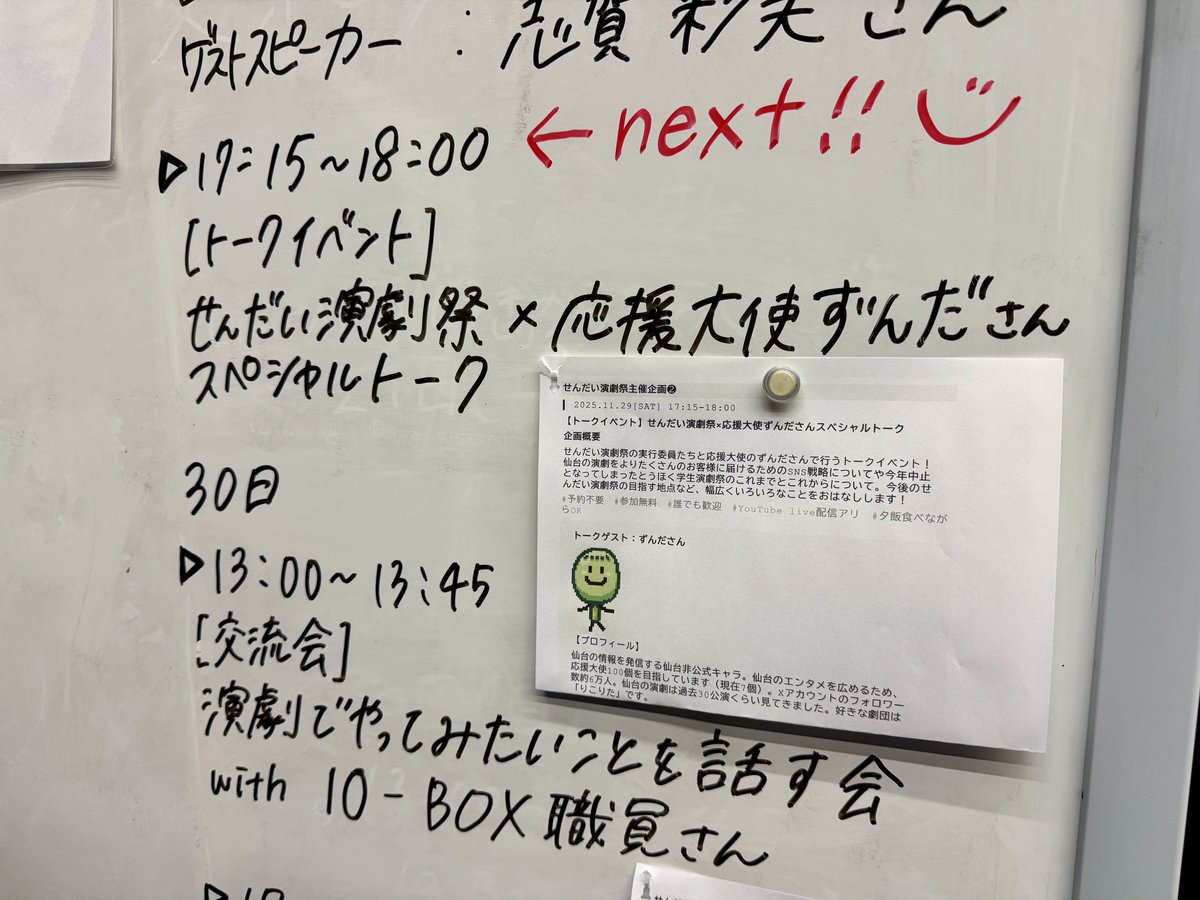 ゲストスピーカー : 志賀 彩美 さん
← next!!
▷17:15~18:00
[トークイベント]
せんだい演劇祭×応援大使ずんださん
スペシャルトーク
せんだい演劇祭主催企画❷
2025.11.29[SAT] 17:15-18:00
【トークイベント】せんだい演劇祭×応援大使ずんださんスペシャルトーク
企画概要
せんだい演劇祭の実行委員たちと応援大使のずんださんで行うトークイベント!
仙台の演劇をよりたくさんのお客様に届けるためのSNS戦略についてや今年中止
となってしまったとうほく学生演劇祭のこれまでとこれからについて。今後のせ
んだい演劇祭の目指す地点など、幅広くいろいろなことをおはなしします!
#予約不要 #参加無料 #誰でも歓迎 #YouTube live配信アリ #夕飯食べなが
らOK
トークゲスト:ずんださん
【プロフィール】
仙台の情報を発信する仙台非公式キャラ。仙台のエンタメを広めるため、
応援大使100個を目指しています(現在7個)。Xアカウントのフォロワー
数約6万人。仙台の演劇は過去30公演くらい見てきました。好きな劇団は
「りこりた」です。
30日
▷13:00~13:45
[交流会]
演劇でやってみたいことを話す会
with 10-BOX職員さん